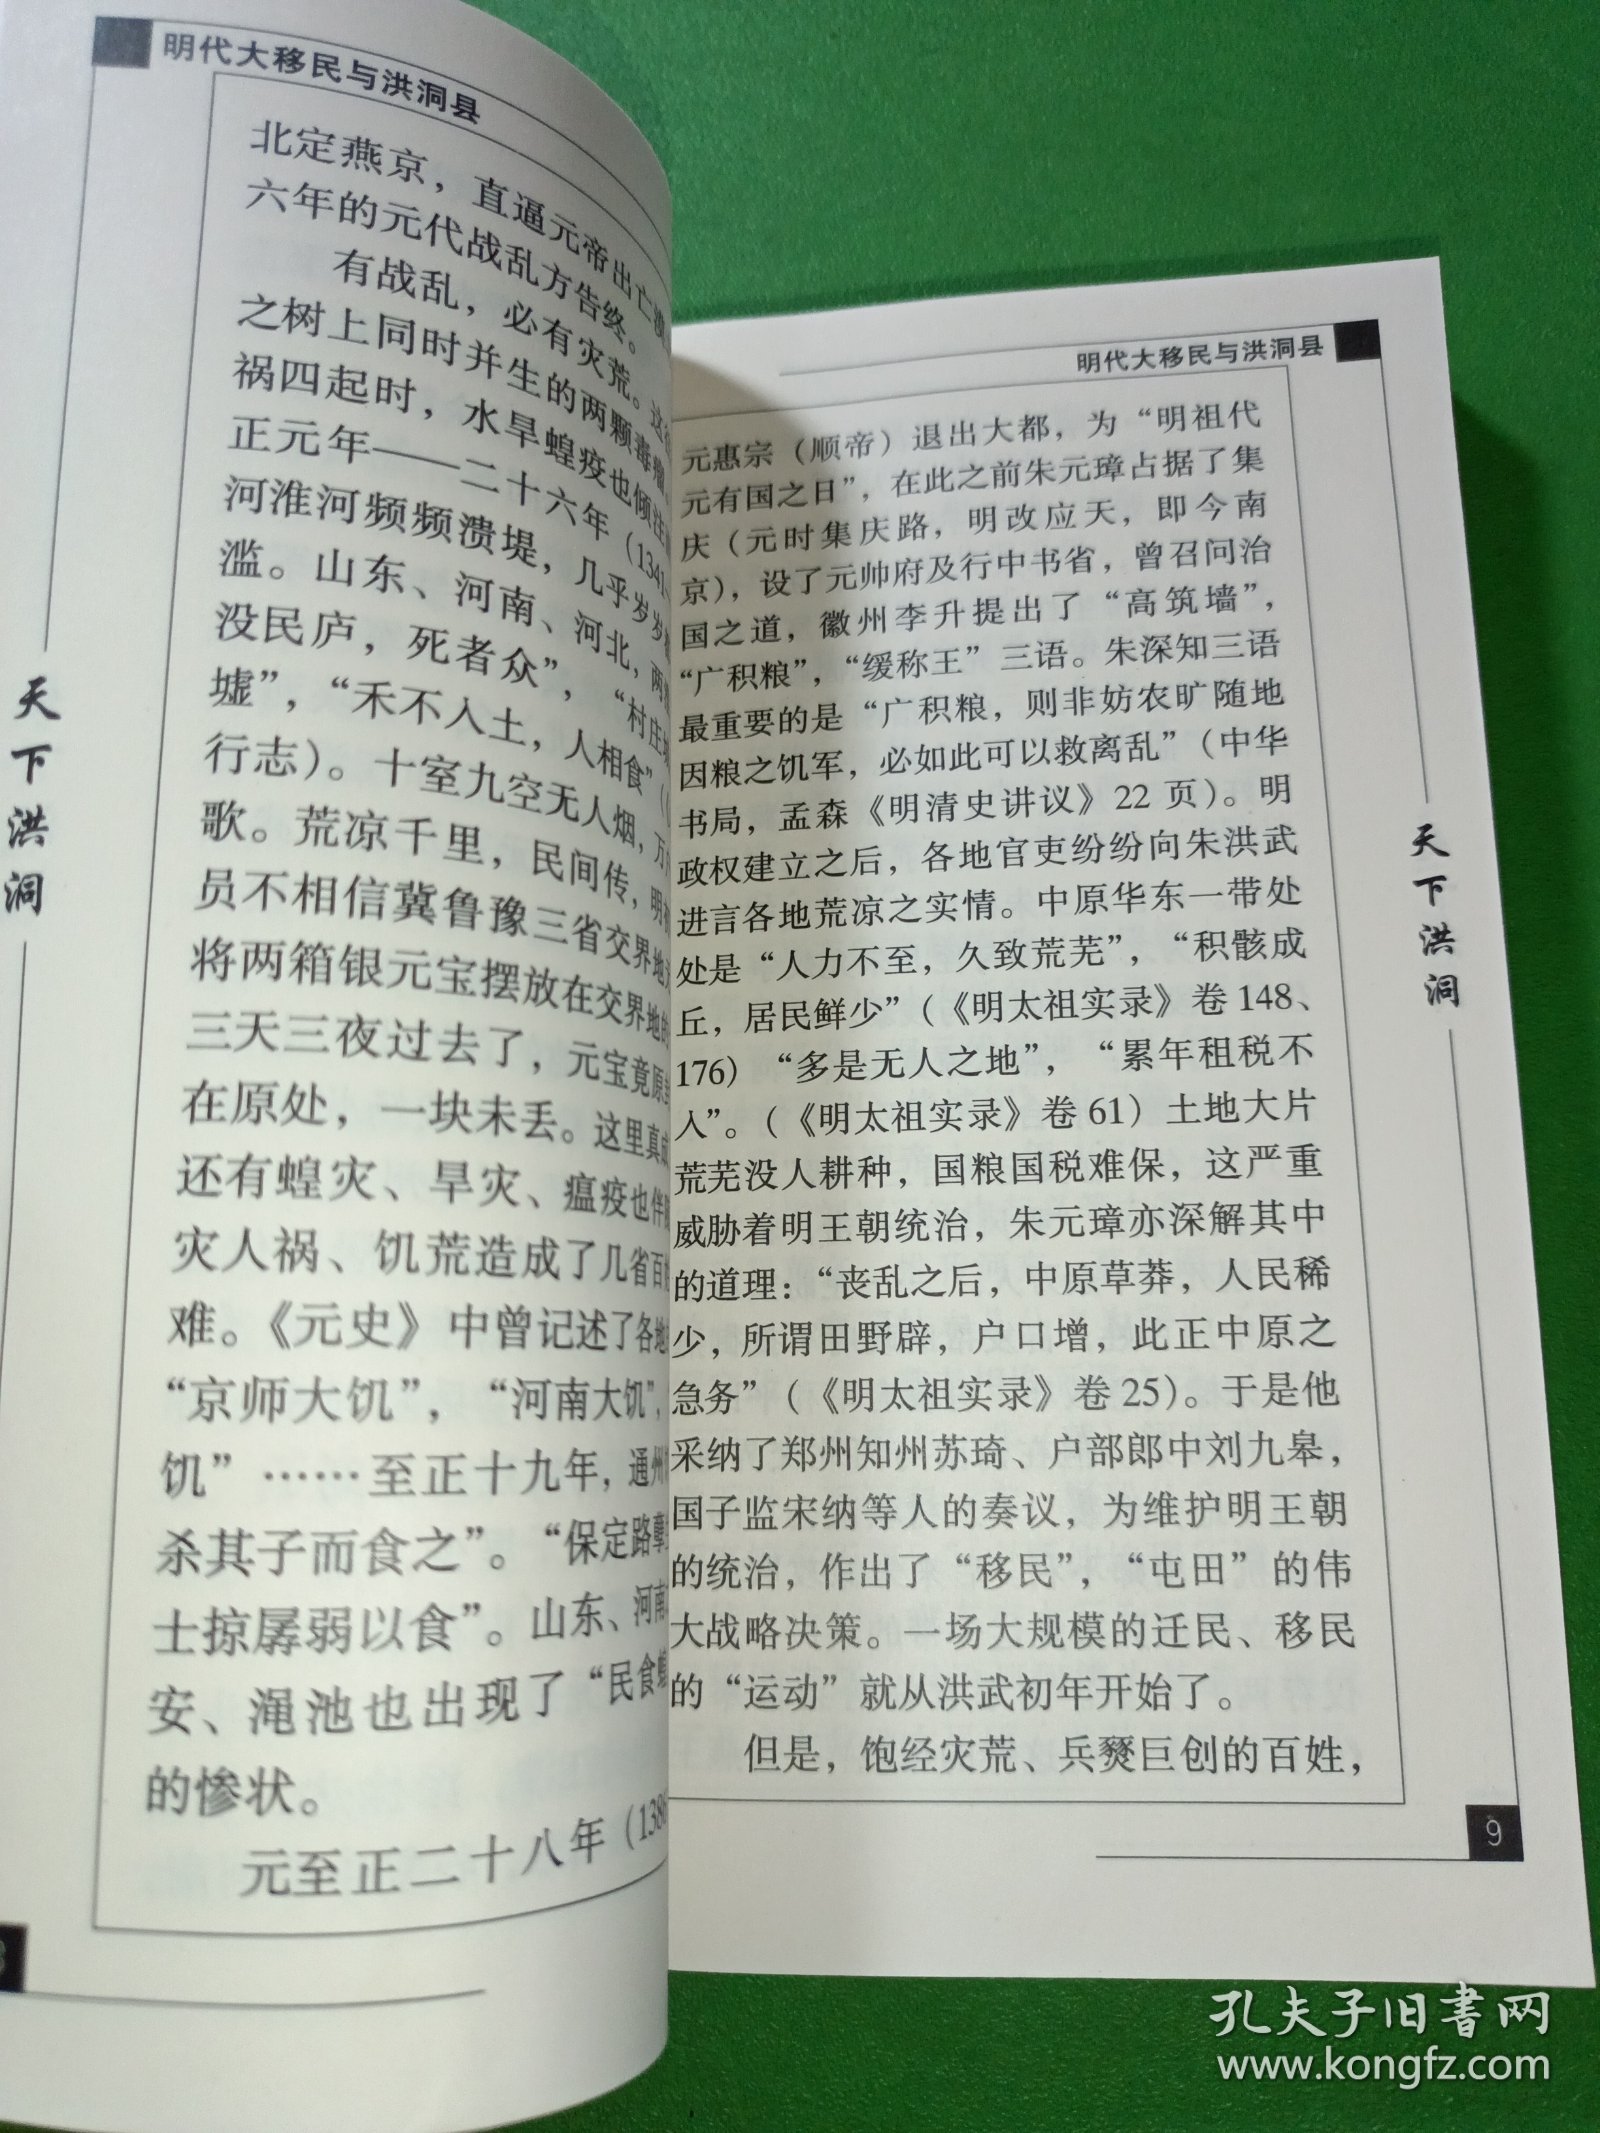 明代大移民与洪洞县
北定燕京，直逼元帝出亡漠
六年的元代战乱方告终。
有战乱，必有灾荒。这
之树上同时并生的两颗毒瘤
祸四起时，水旱蝗疫也倾注
正元年——二十六年（1341
河淮河频频溃堤，几乎岁岁
滥。山东、河南、河北，两
没民庐，死者众”，“村庄
墟”，“禾不入土，人相食”（
行志）。十室九空无人烟，万
歌。荒凉千里，民间传，明
员不相信冀鲁豫三省交界地
将两箱银元宝摆放在交界地的
三天三夜过去了，元宝竟原
在原处，一块未丢。这里真成
还有蝗灾、旱灾、瘟疫也伴
灾人祸、饥荒造成了几省百
难。《元史》中曾记述了各地
“京师大饥”，“河南大饥”，
饥”……至正十九年，通州
杀其子而食之”。“保定路孽
士掠孱弱以食”。山东、河南
安、渑池也出现了“民食蝗
的惨状。
元至正二十八年（1386
天下洪洞
明代大移民与洪洞县
元惠宗（顺帝）退出大都，为“明祖代
元有国之日”，在此之前朱元璋占据了集
庆（元时集庆路，明改应天，即今南
京），设了元帅府及行中书省，曾召问治
国之道，徽州李升提出了“高筑墙”，
“广积粮”，“缓称王”三语。朱深知三语
最重要的是“广积粮，则非妨农旷随地
因粮之饥军，必如此可以救离乱”（中华
书局，孟森《明清史讲议》22 页）。明
政权建立之后，各地官吏纷纷向朱洪武
进言各地荒凉之实情。中原华东一带处
处是“人力不至，久致荒芜”，“积骸成
丘，居民鲜少”（《明太祖实录》卷 148、
176）“多是无人之地”，“累年租税不
入”。（《明太祖实录》卷 61）土地大片
荒芜没人耕种，国粮国税难保，这严重
威胁着明王朝统治，朱元璋亦深解其中
的道理：“丧乱之后，中原草莽，人民稀
少，所谓田野辟，户口增，此正中原之
急务”（《明太祖实录》卷 25）。于是他
采纳了郑州知州苏琦、户部郎中刘九皋，
国子监宋纳等人的奏议，为维护明王朝
的统治，作出了“移民”，“屯田”的伟
大战略决策。一场大规模的迁民、移民
的“运动”就从洪武初年开始了。
但是，饱经灾荒、兵燹巨创的百姓，
天下洪洞
9
孔夫子旧书网
www.kongfz.com